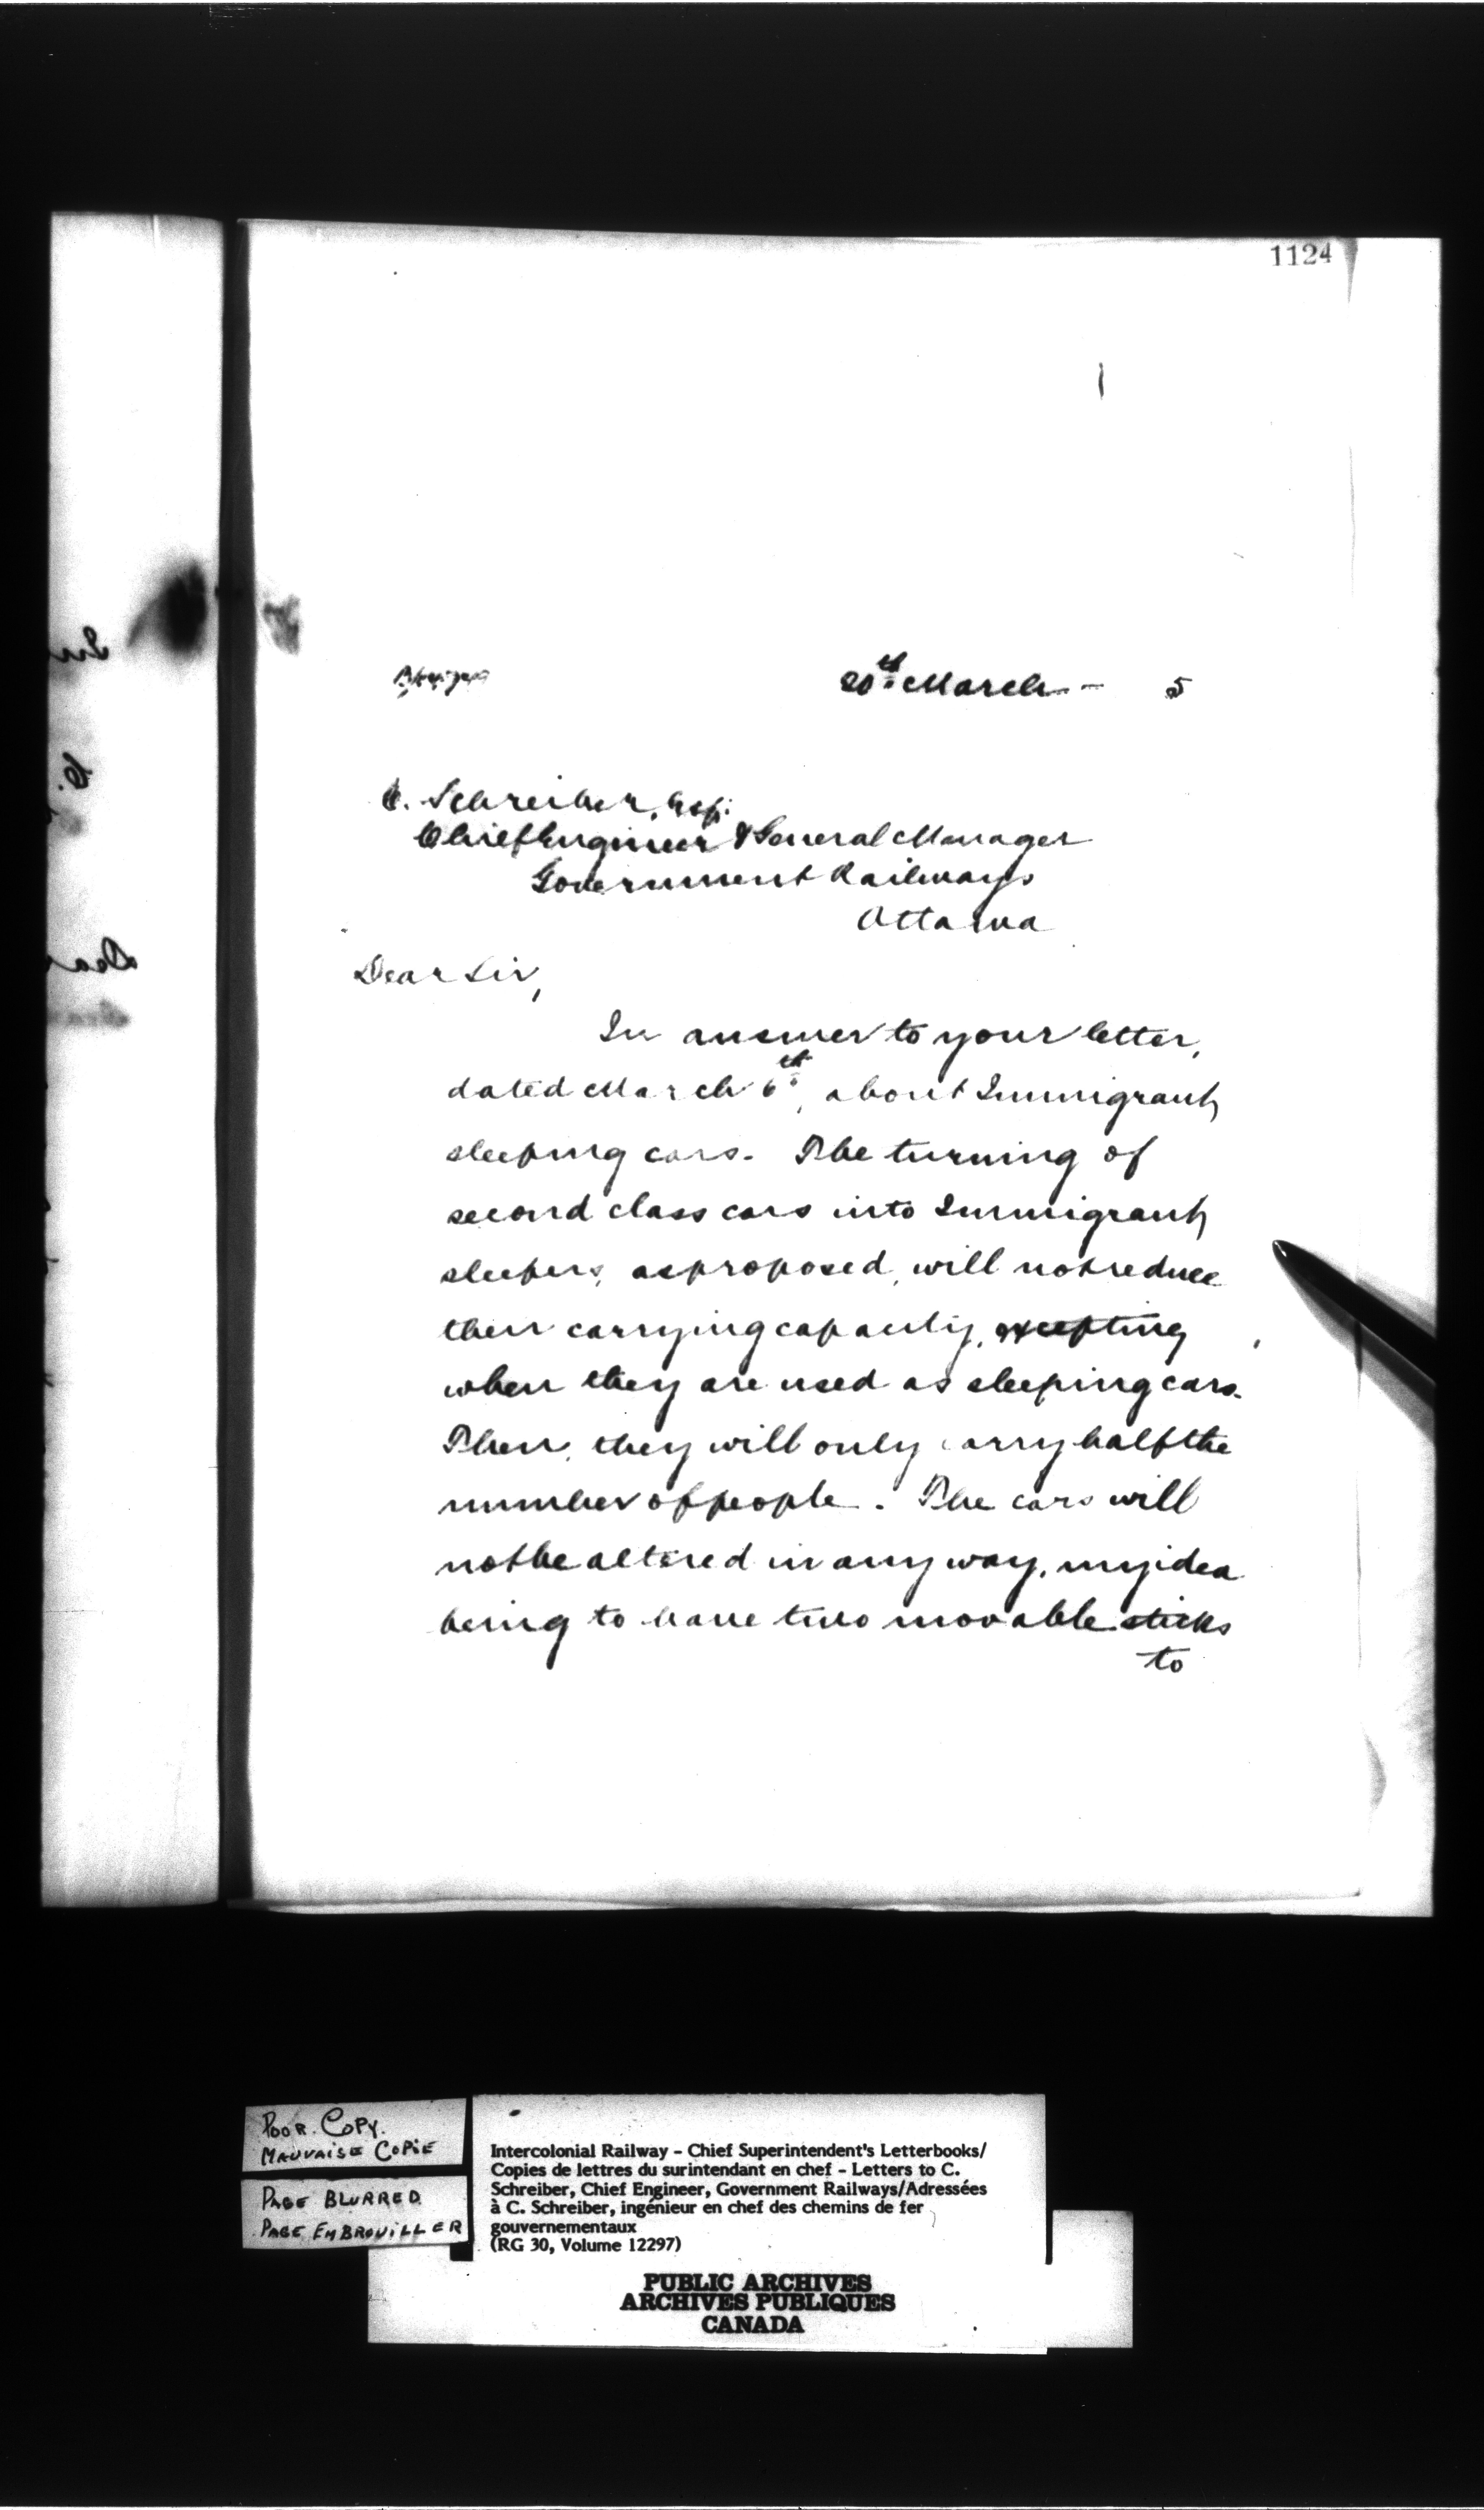 1124
20th March - 5
C. Schreiber, Esq:
Chief Engineer & General Manager
Government Railways
Ottawa
Dear Sir,
In answer to your letter,
dated March 6th, about Immigrant
sleeping cars. The turning of
second class cars into Immigrant
sleepers, as proposed, will not reduce
their carrying capacity, excepting
when they are used as sleeping cars.
Then, they will only carry half the
number of people. The cars will
not be altered in any way, my idea
being to have two movable sticks
to
POOR COPY.
MAUVAISE COPIE
PAGE BLURRED
PAGE EMBROUILLER
Intercolonial Railway - Chief Superintendent's Letterbooks/
Copies de lettres du surintendant en chef - Letters to C.
Schreiber, Chief Engineer, Government Railways/Adressées
à C. Schreiber, ingénieur en chef des chemins de fer
gouvernementaux
(RG 30, Volume 12297)
PUBLIC ARCHIVES
ARCHIVES PUBLIQUES
CANADA